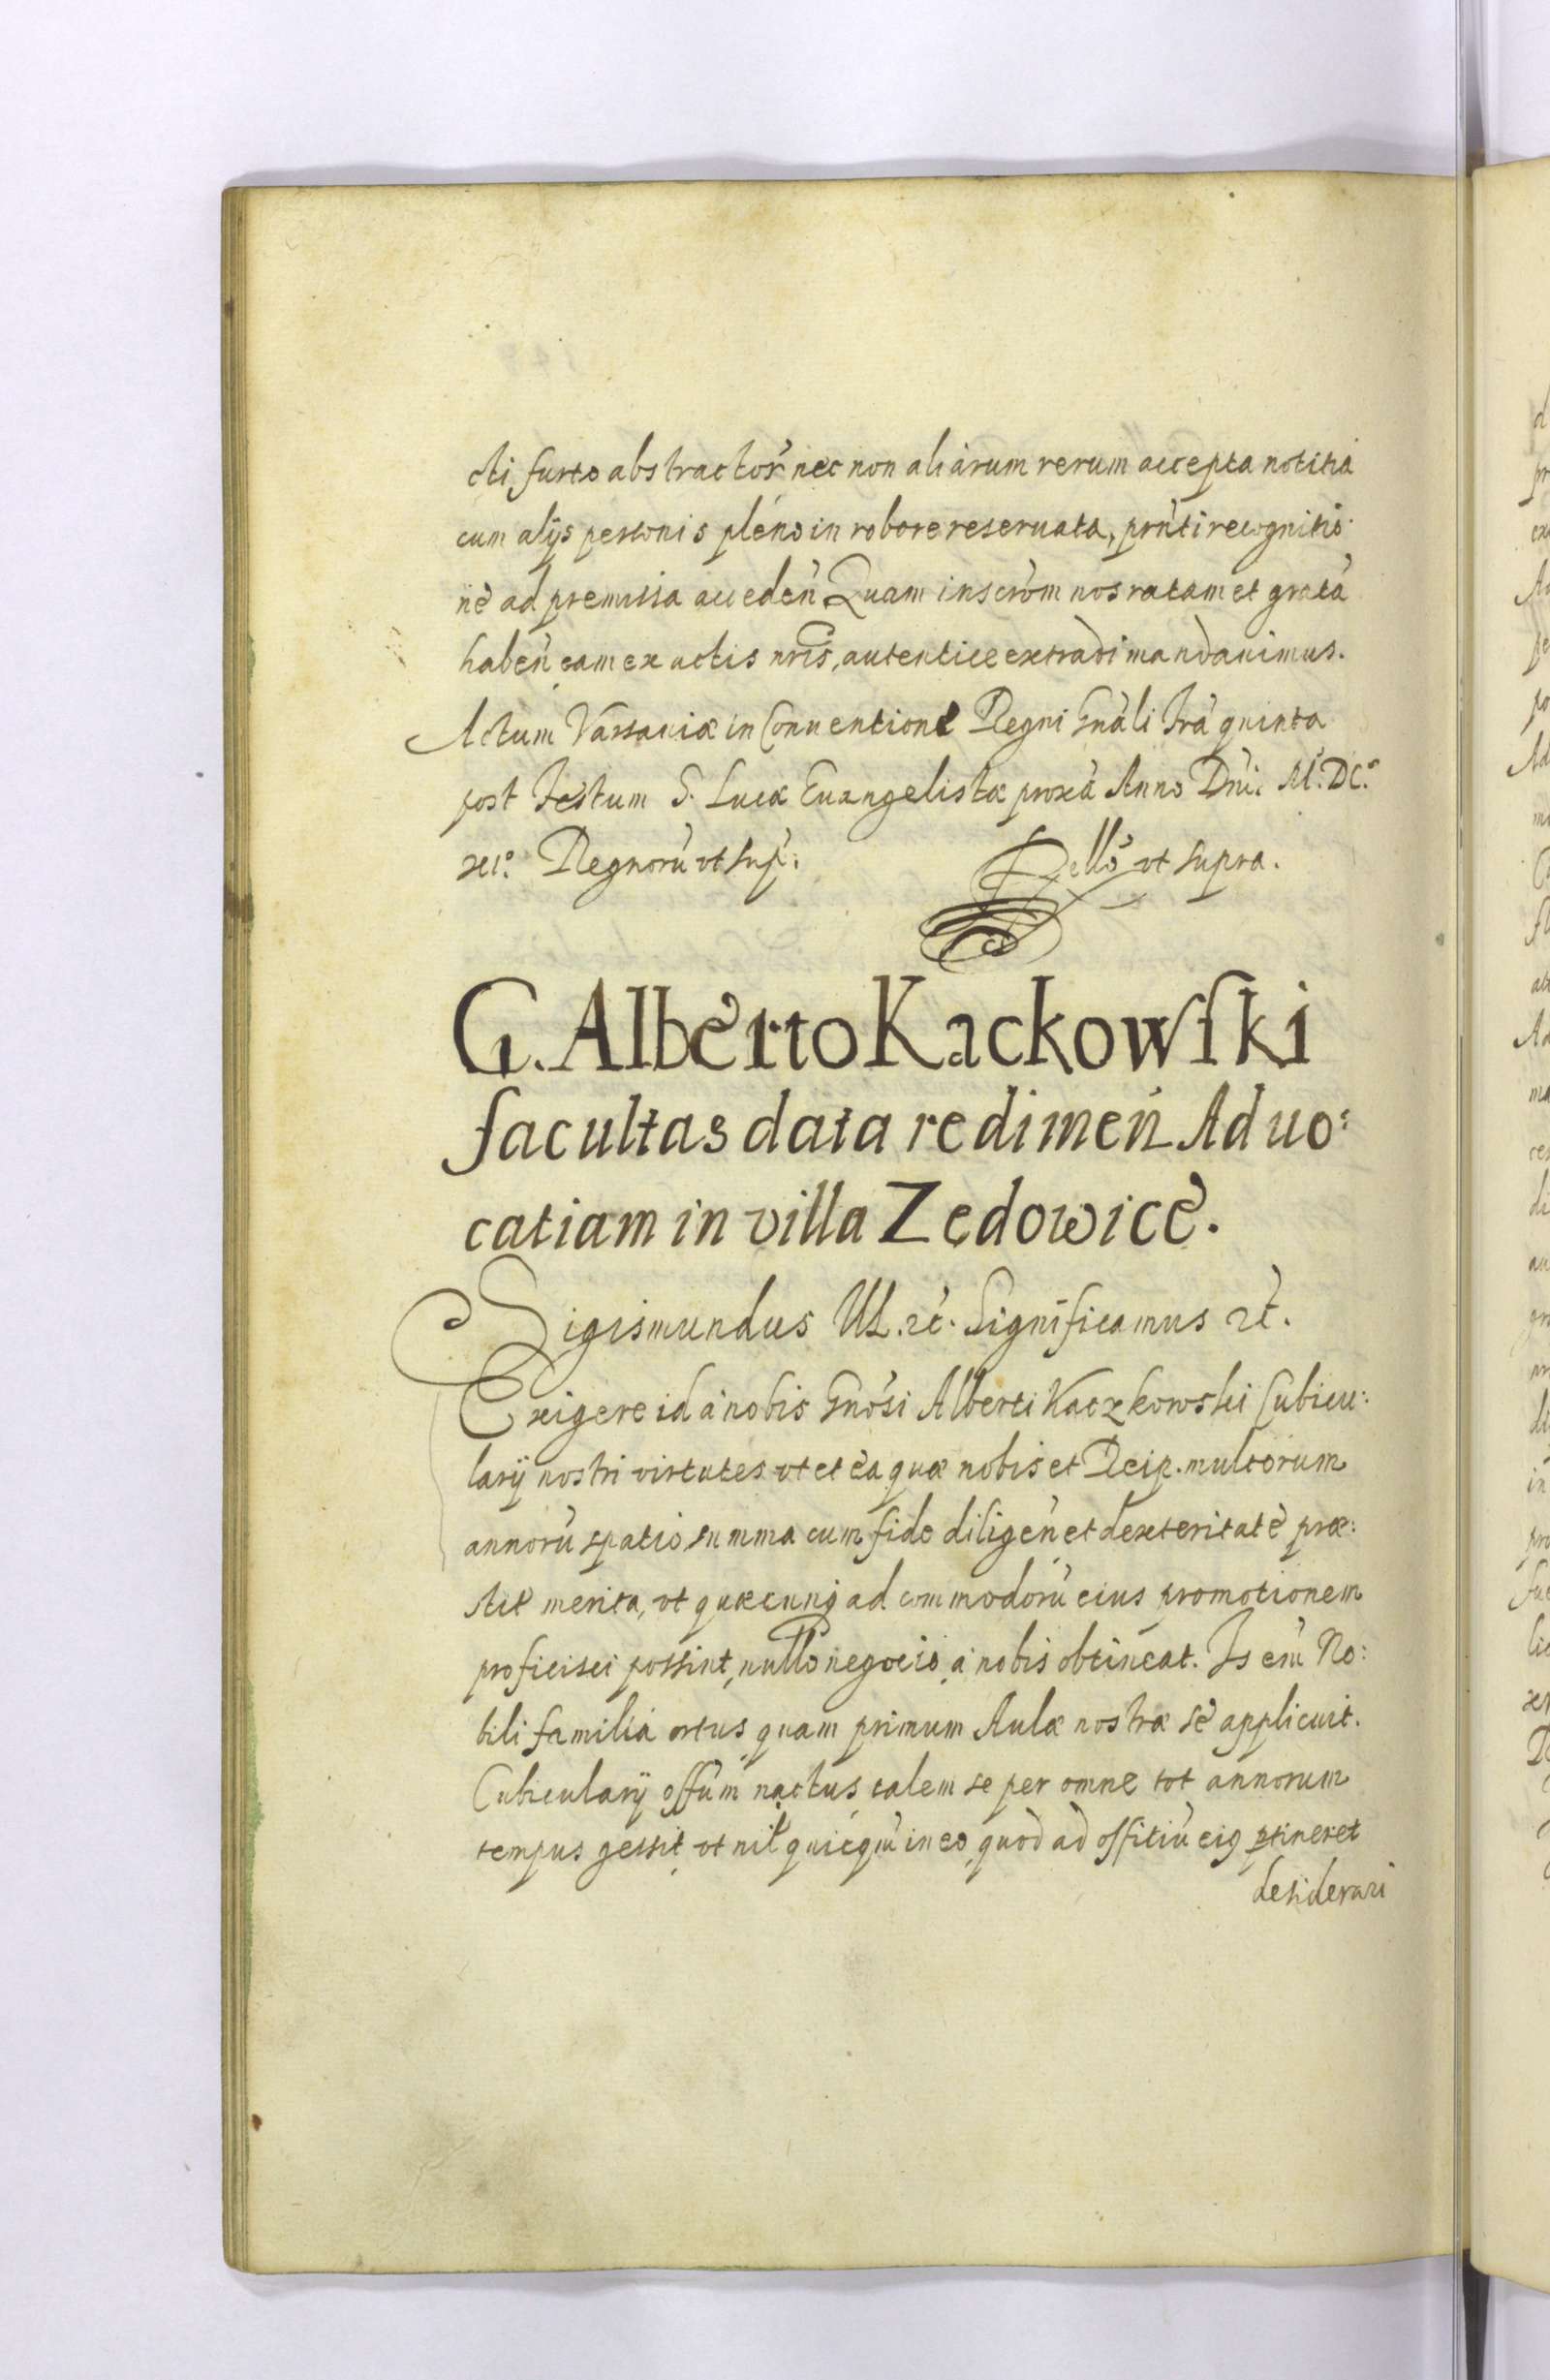 cti furto abstractor̃ nec non aliarum rerum accepta notitia
cum alijs personis pleno in robore reseruata, pñti recognitio-
nè ad premissa acceden̄ Quam inscr̃om nos ratam et gratã
haben̄ eam ex actis nr̃is, autentice extradi mandauimus.
Actum Varsauiæ in Conuentione Regni Gnãli frã quinta
post Festum S. Lucæ Euangelistæ proxã Anno Dni: M.DC.º
xi.º Regnorũ vt sup:
Rellõ vt supra.
G. Alberto Kackowski
facultas data redimen̄ Aduo:
catiam in villa Zedowice.
Sigismundus III. etc. Significamus etc.
Exigere id à nobis Gnõsi Alberti Kaczkowski Cubicu:
larij nostri virtutes vt et ea quæ nobis et Reip. multorum
annorũ spatio summa cum fide diligen̄ et dexteritatè præ:
stit merita, vt quæcunq; ad commodorũ eius promotionem
proficisci possint, nullo negocio à nobis obtineat. Is eni͂ No:
bili familia ortus quam primum Aulæ nostræ se applicuit.
Cubicularij offũm nactus talem se per omne tot annorum
tempus gessit vt nil quicq̃ in eo quod ad offitiũ eiꝰ ꝑtineret
desiderari